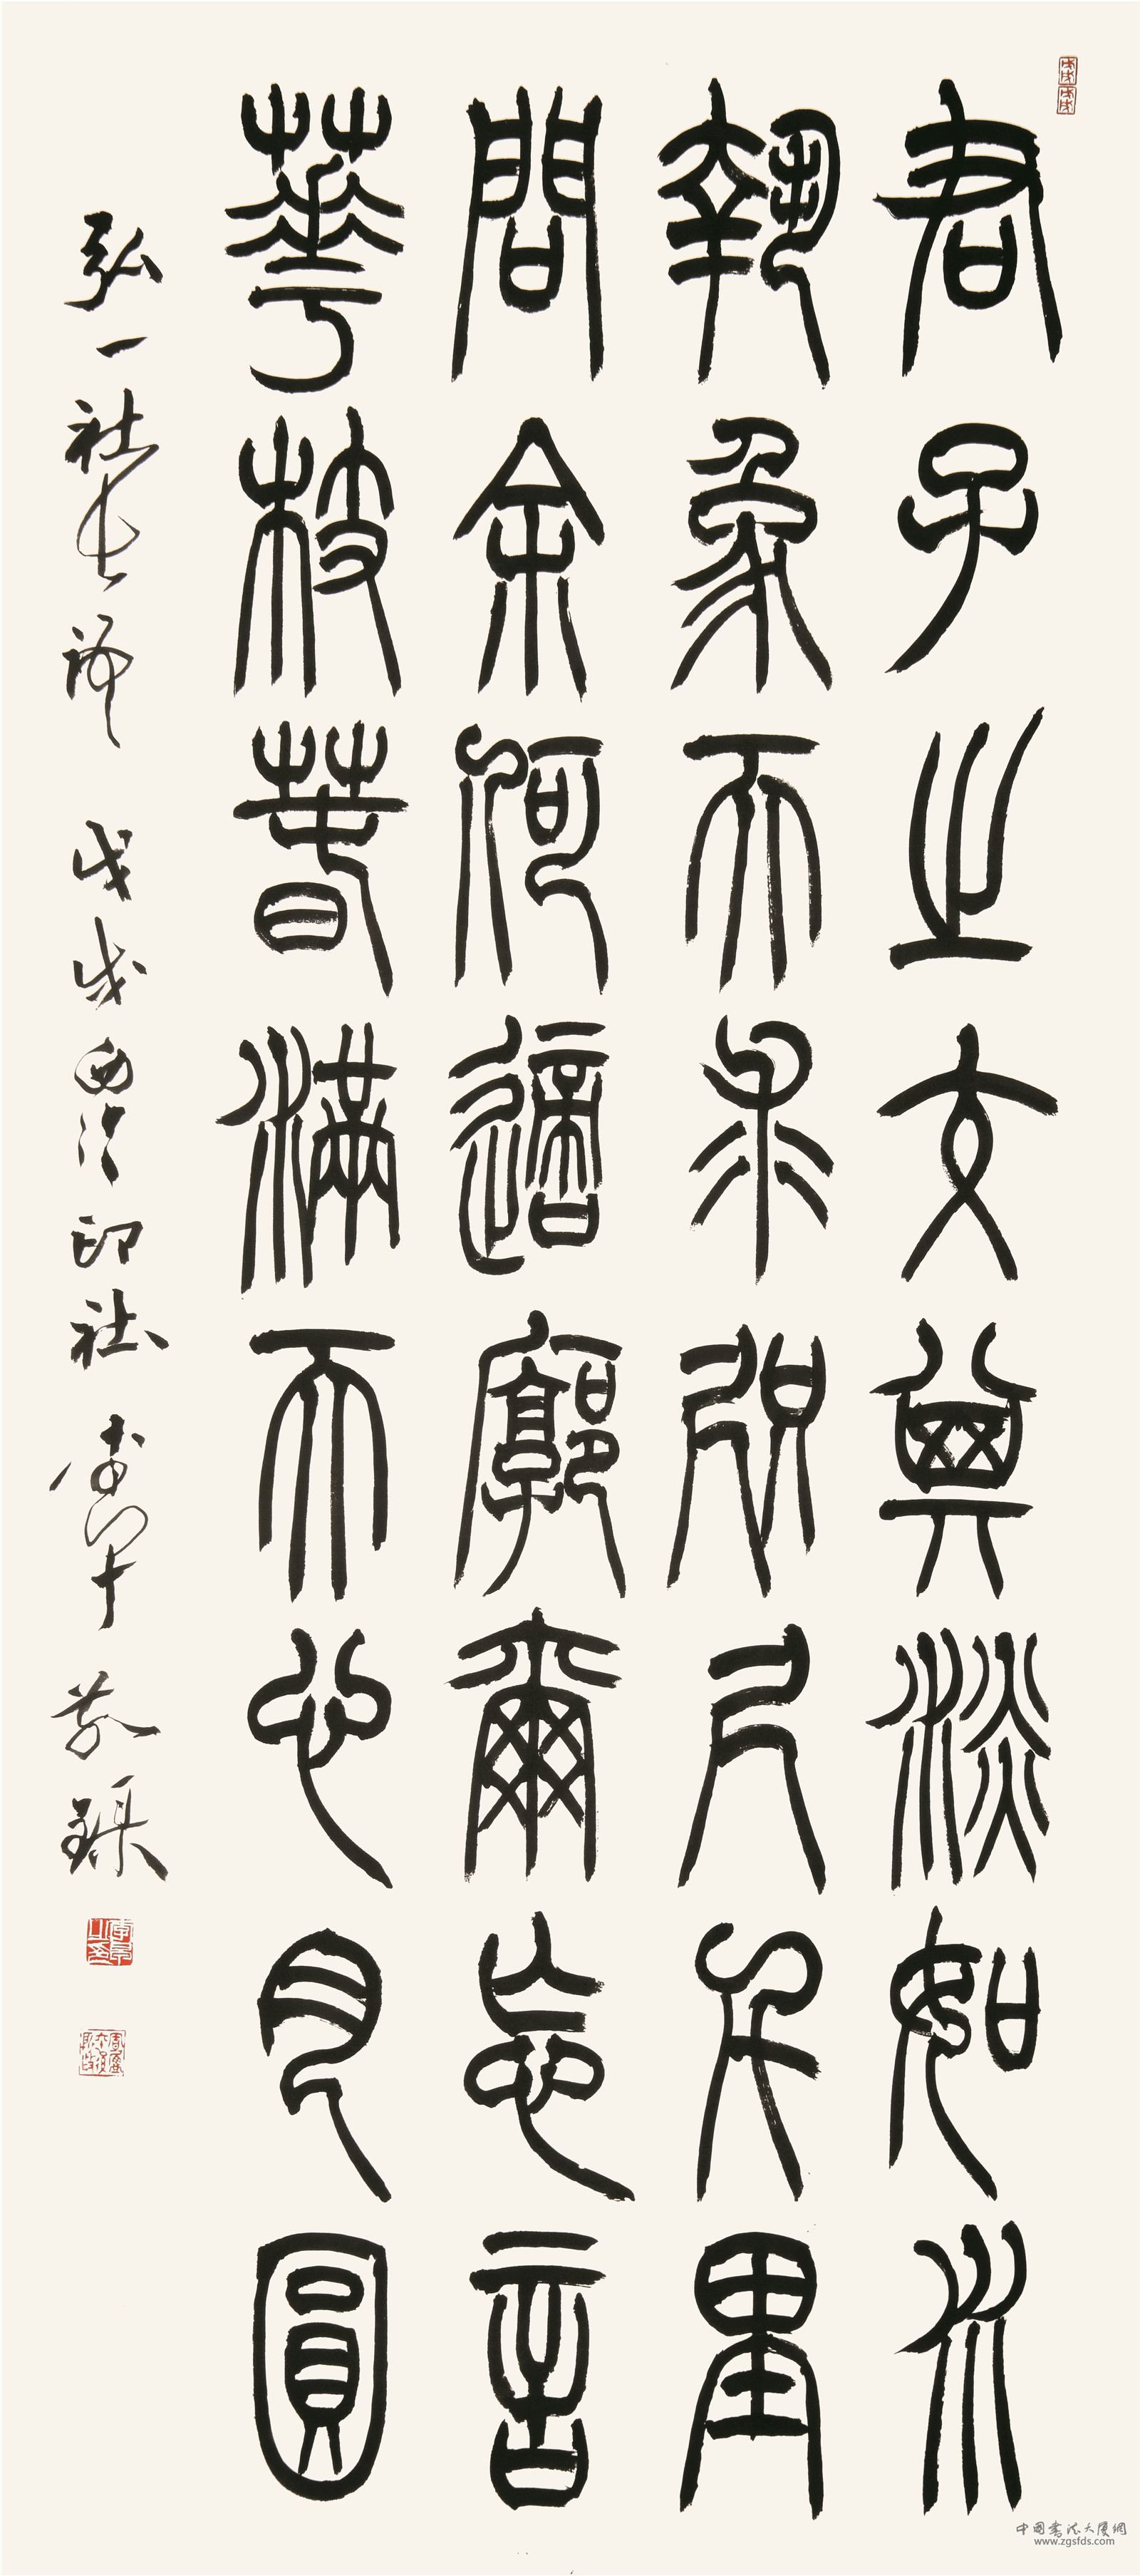 戊戌
君子之交其淡如水
執象而求咫尺千里
問余何適廓爾忘言
華枝春滿天心月圓
弘一社長 戊戌西泠印社 敬録
中国書法大廈網
www.zgsfds.com